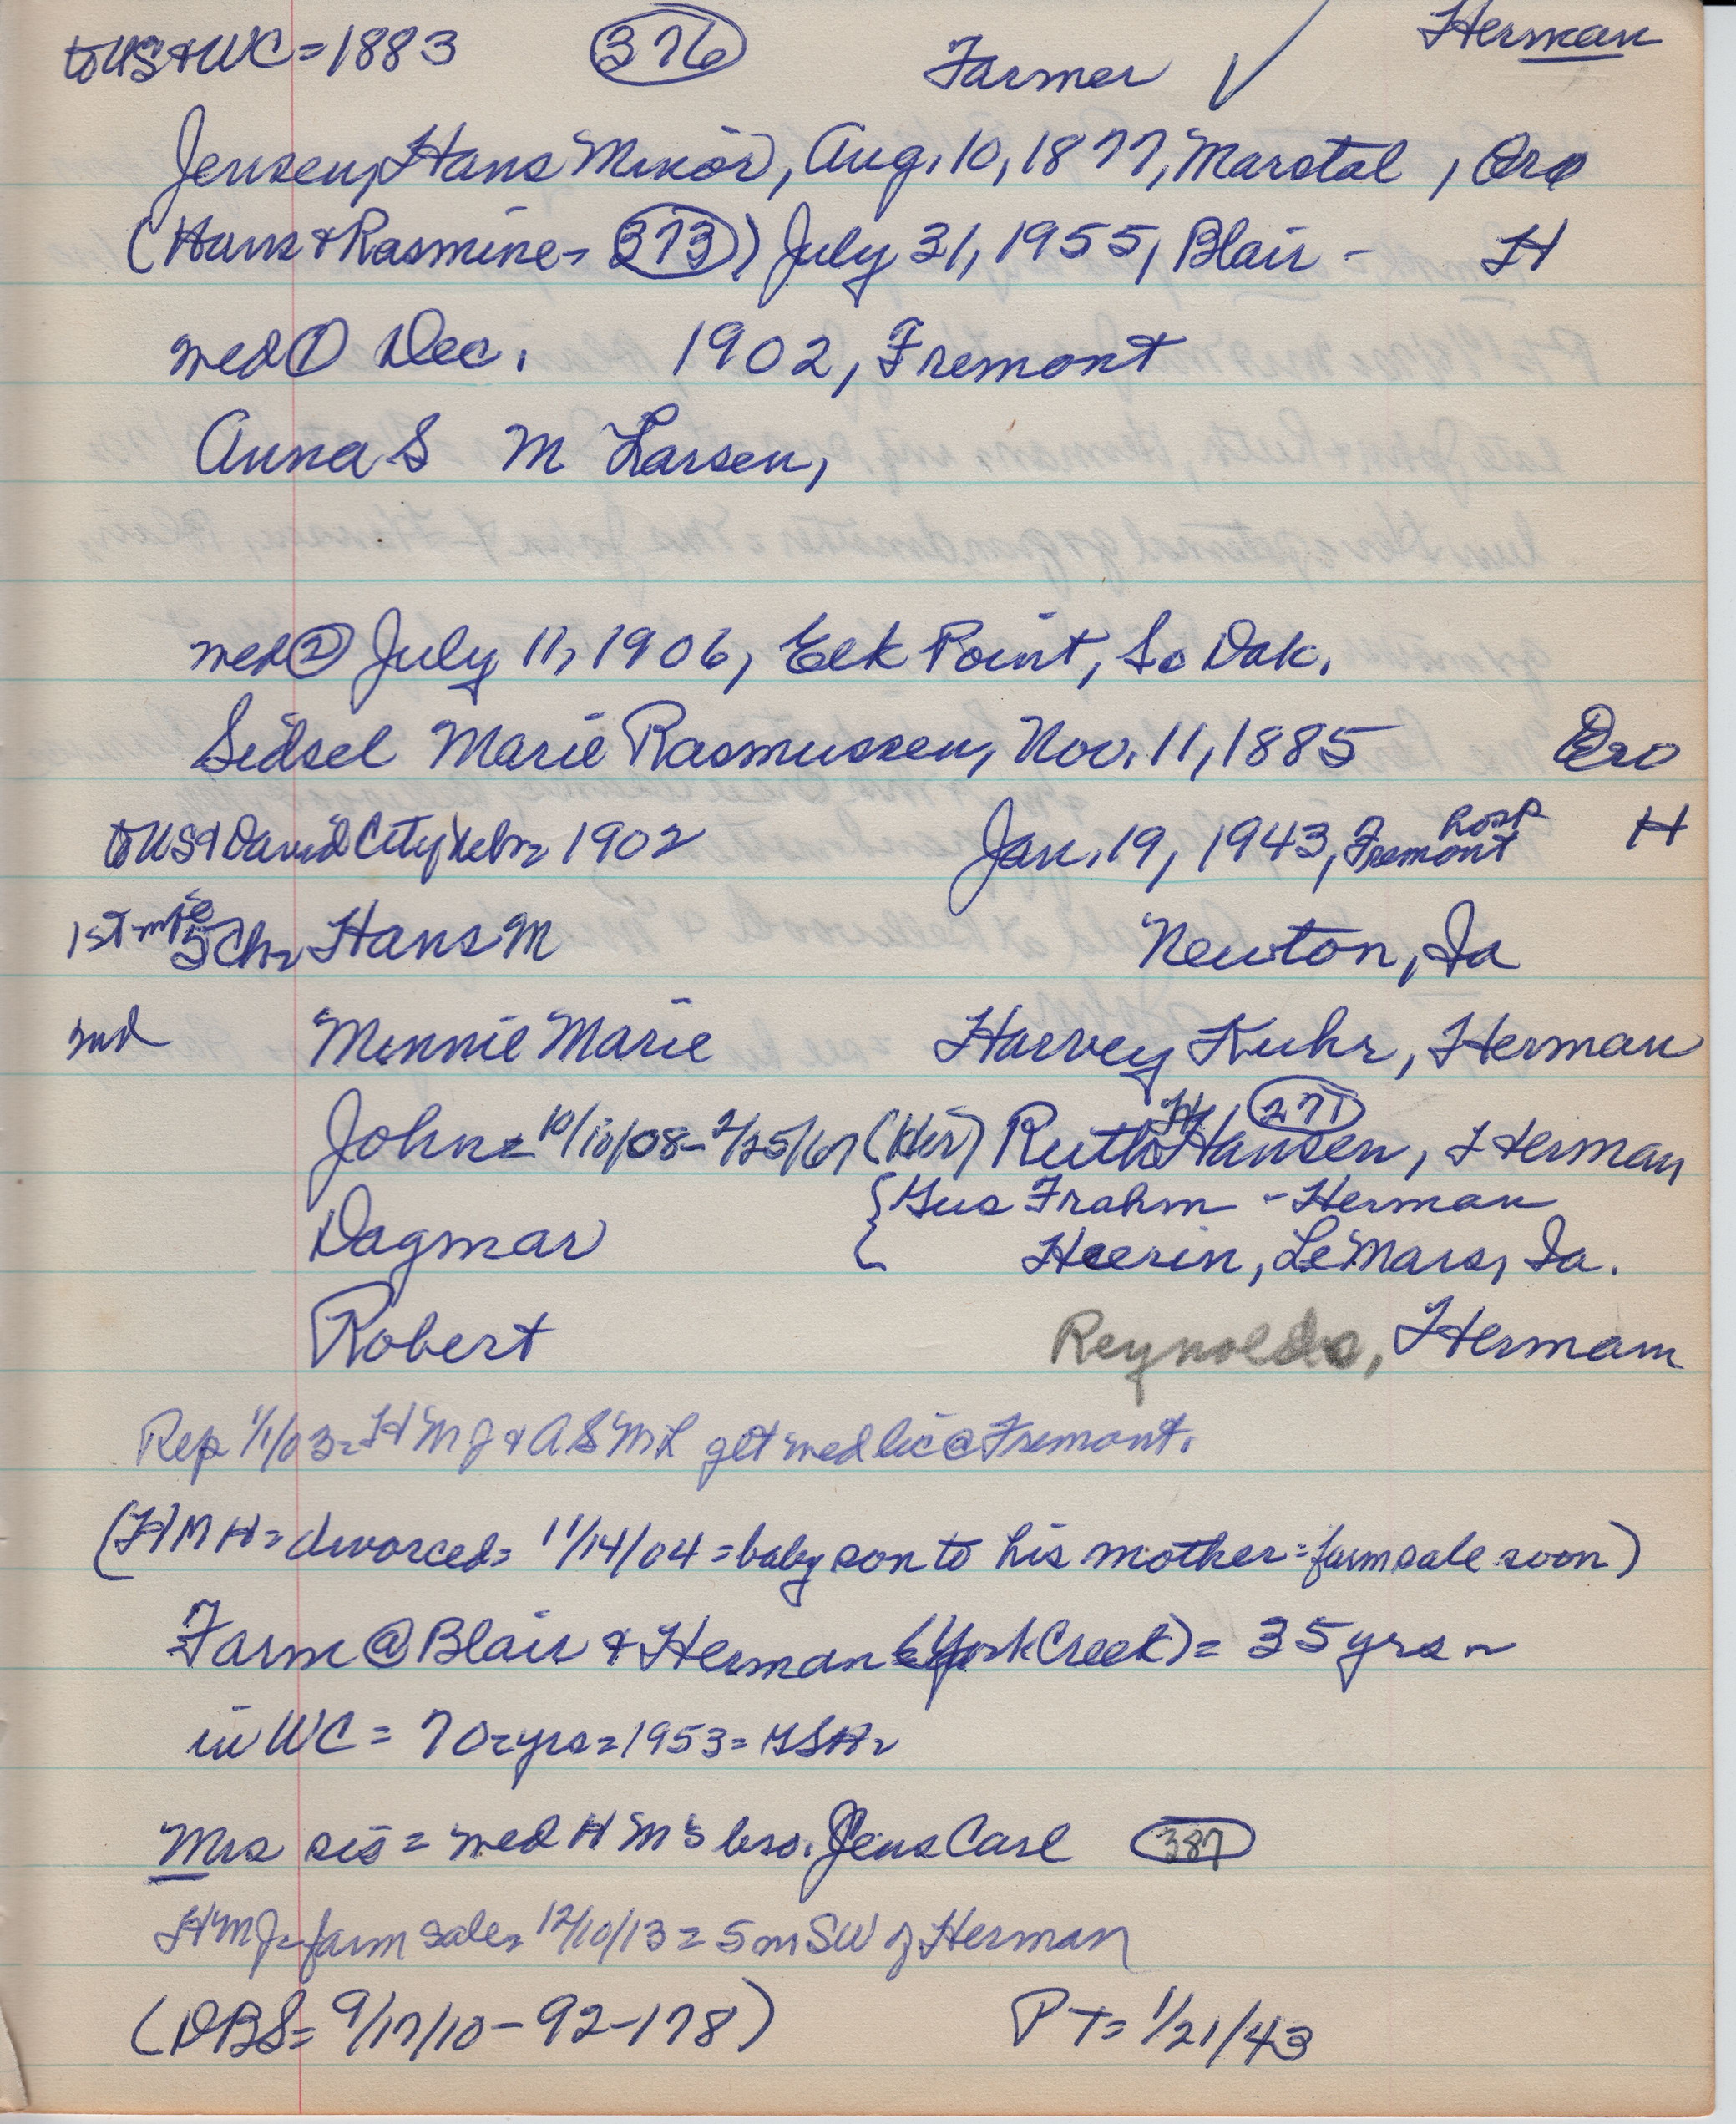 to US & WC = 1883 376 Farmer ✓ Herman
Jensen, Hans Minor, Aug. 10, 1877, Marstal, Ero
(Hans & Rasmine = 373) July 31, 1955, Blair - H
med ① Dec. 1902, Fremont
Anna S M Larsen,
med ② July 11, 1906, Elk Point, So Dak.
Sidsel Marie Rasmussen, Nov. 11, 1885 Ero
to US & David City Nebr = 1902 Jan. 19, 1943, Fremont hosp H
1st mge 5 Ch = Hans M Newton, Ia
2nd Minnie Marie Harvey Kuhr, Herman
John = 10/10/08 - 2/25/67 (Her) Ruth H Hansen, 271 Herman
Dagmar { Gus Frahm - Herman
Heerin, LeMars, Ia.
Robert Reynolds, Herman
Rep 1/1/03 = H M J & A S M L get med lic @ Fremont.
(H M H = divorced = 11/14/04 = baby son to his mother = farm sale soon)
Farm @ Blair & Herman (York Creek) = 35 yrs =
in WC = 70 = yrs = 1953 =
Mrs sis = med H M's bro. Jens Carl 387
H M J = farm sale = 12/10/13 = 5 m SW of Herman
(DBS = 9/17/10 - 92-178) PT = 1/21/43